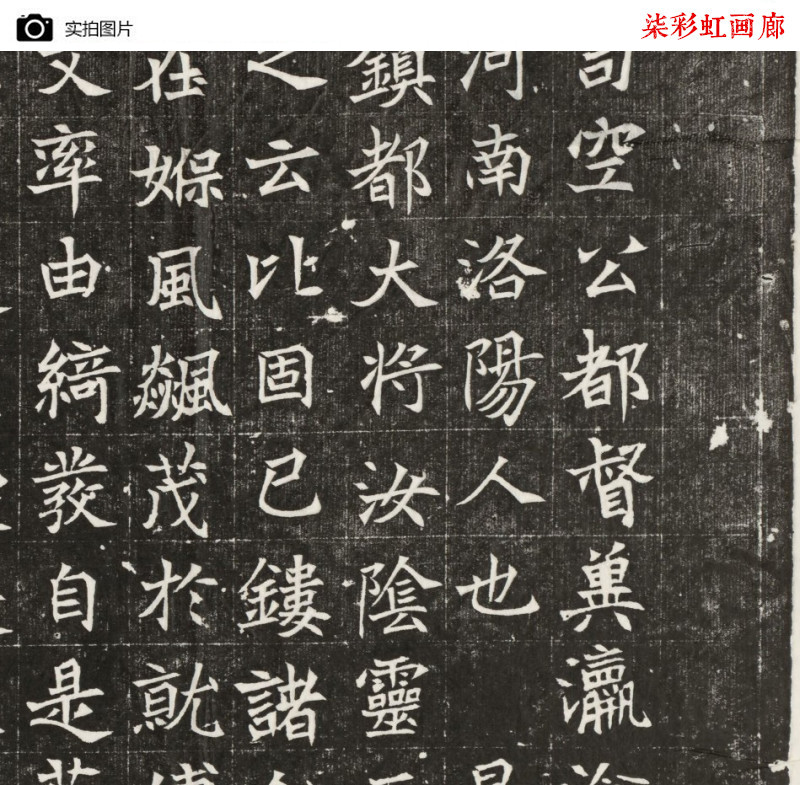 实拍图片
柒彩虹画廊
司空公都督冀瀛
河南洛阳人也
鎮都大将汝陰靈
之云比固已鏤諸
在媬風飆茂於就
文率由綺發自是